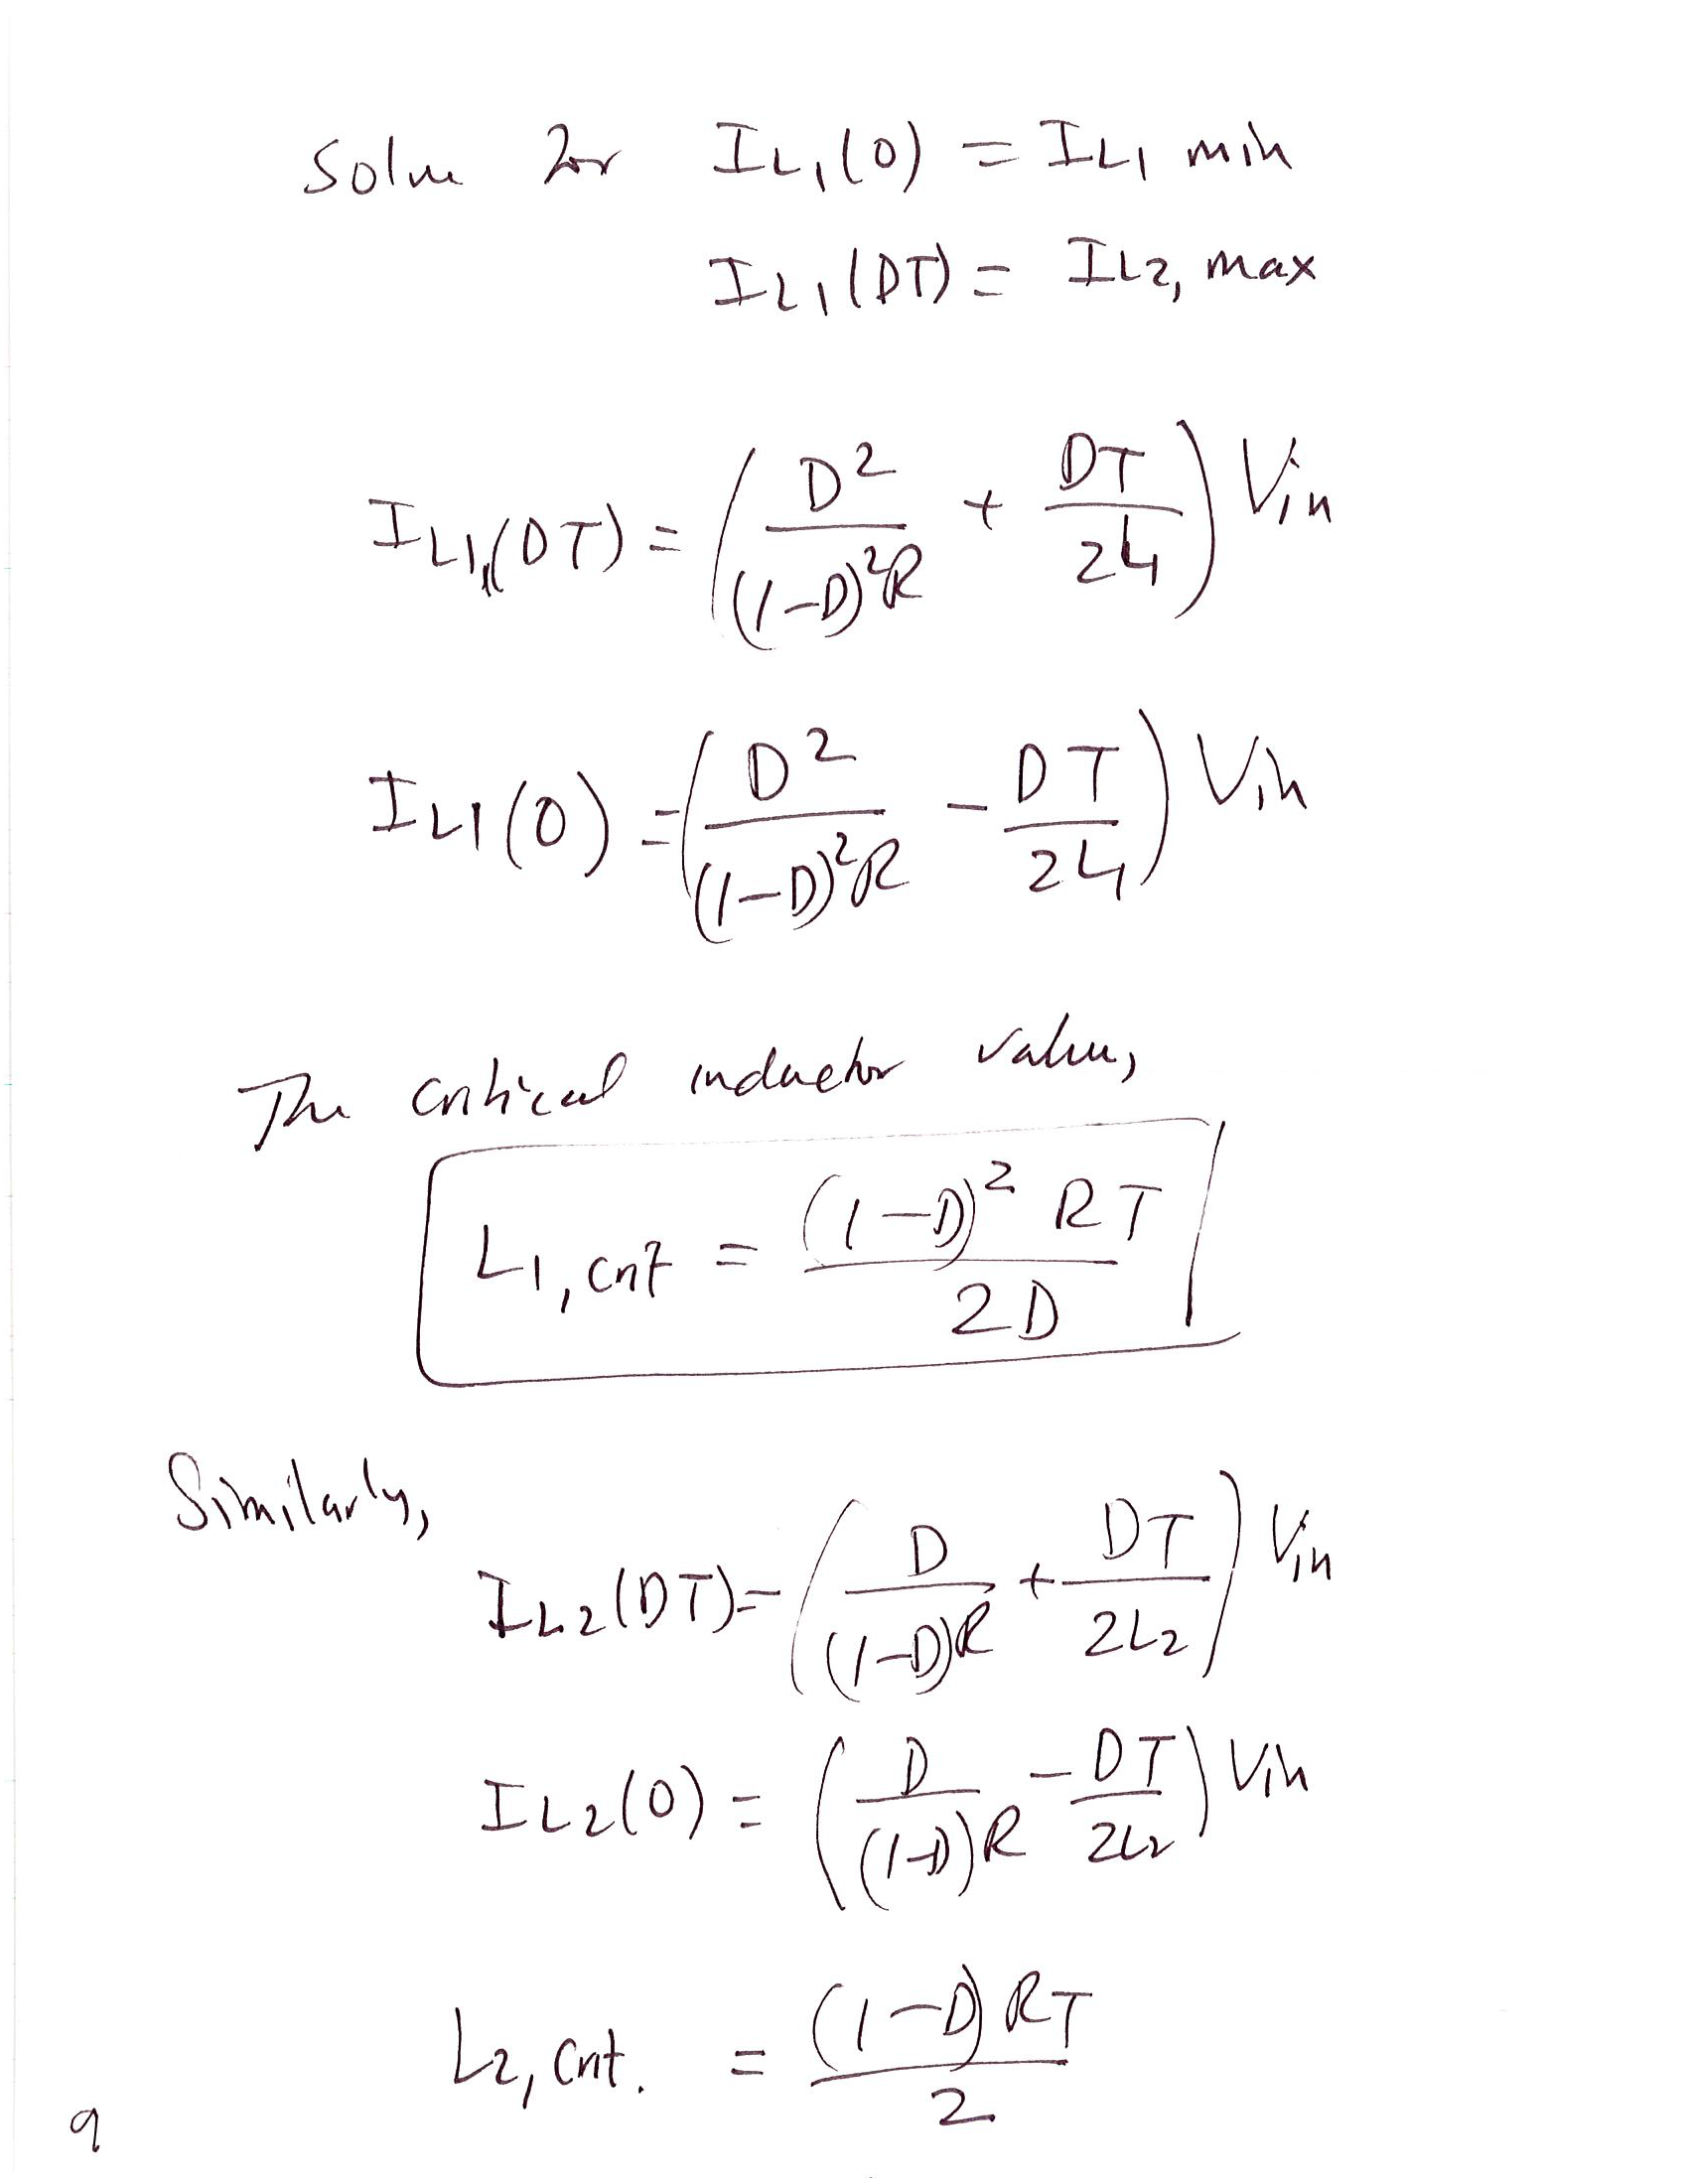 Solve for I_L1(0) = I_L1 min
I_L1(DT) = I_L2, max
I_L1,(DT) = (D² / (1-D)²R + DT / 2L₁) Vin
I_L1(0) = (D² / (1-D)²R - DT / 2L₁) Vin
The critical inductor value,
L₁, crit = (1-D)² RT / 2D
Similarly,
I_L2(DT) = (D / (1-D)R + DT / 2L₂) Vin
I_L2(0) = (D / (1-D)R - DT / 2L₂) Vin
L₂, crit. = (1-D) RT / 2
9